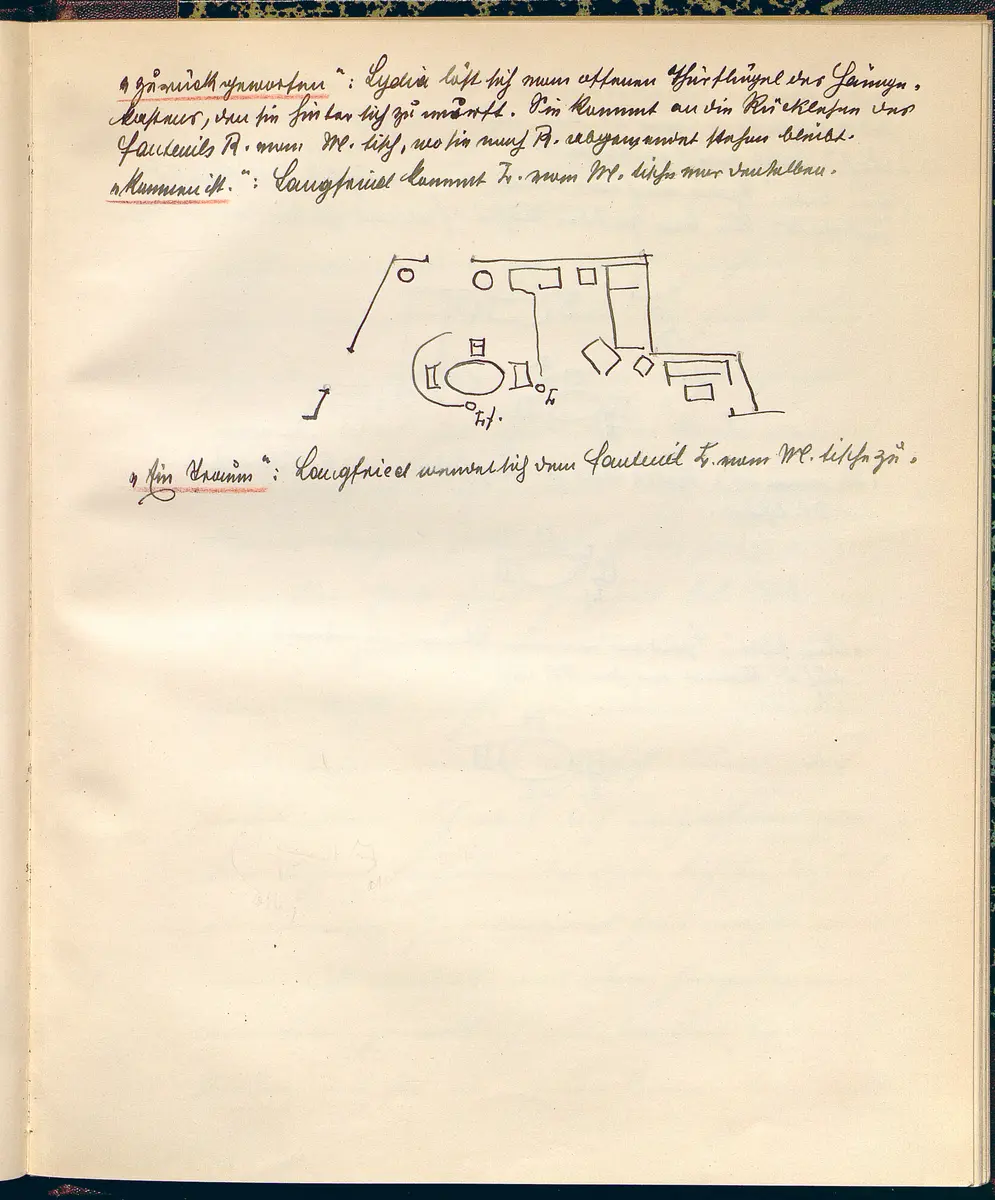 „zurückgeworfen“: Lydia löst sich vom offenen Thürflügel des Hänge-
kastens, den sie hinter sich zu wirft. Sie kommt an die Rücklehne des
Fauteuils R. vom M. tisch, wo sie nach R. abgewendet stehen bleibt.
„kommen ist.“: Langfried kommt L. vom M. tische vor denselben.
L
Lf.
„Ein Traum“: Langfried wendet sich dem Fauteuil L. vom M. tische zu.